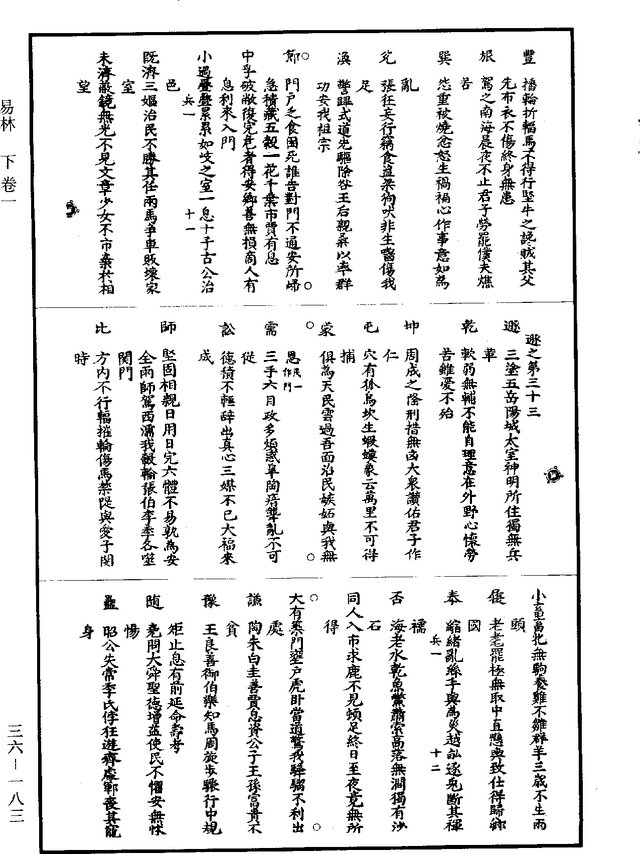 易林　下卷一
豐　播輪折輻馬不得行堅牛之讒賊其父
先布衣不傷終身無患
旅　駕之南海晨夜不止君子勞罷僕夫憔
苦
巽　忿重被燒忿怒生禍褊心作事意如為
亂
兌　張狂妄行竊食盜粱狗吠非主嚙傷我
足
渙　警蹕戒道先驅除咎王后親桑以率群
功安我祖宗
節　門戶之食困死誰告對門不通安所歸
急積藏五穀一花千葉市賈有息
中孚破敝復完危者得安鄉善無損商人有
息利來入門
小過疊疊累累如岐之室一息十子古公治
邑
兵一　十一
既濟三嫗治民不勝其任兩馬爭車敗壞家
室
未濟蔽鏡無光不見文章少女不市棄於相
望
遯之第三十三
遯　三塗五岳陽城太室神明所住獨無兵
革
乾　軟弱無輔不能自理意在外野心懷勞
苦雖憂不殆
坤　周成之隆刑措無凶大泉讚佑君子作
仁
屯　穴有狐烏坎生蝦蟆象去萬里不可得
捕
蒙　俱為天民雲過吾面治民嫉妬與我無
恩民一作門
需　三手六目政多煩惑皋陶瘖聾亂不可
從
訟　德積不輕辭出真心三媒不已大福來
成
師　堅固相親日用日完六體不易孰為安
全雨師駕西濡我轂輪張伯李季各坐
関門
比　方內不行輻摧輪傷馬禁從與愛子閔
時
小畜畜牝無駒養雞不雛群羊三歲不生兩
頭
履　老耄罷極無取中直懸輿致仕得歸鄉
國
泰　縮緒亂絲手與為災越訟逐兔斷其褌
襦
兵一　十二
否　海老水乾魚鱉蕭索高落無潤獨有沙
石
同人入市求鹿不見頓足終日至夜竟無所
得
大有蔡門壅戶虎臥當道驚我驊騮不利出
處
謙　陶朱白圭善賈息資公子王孫富貴不
貧
豫　王良善御伯樂知馬周旋步驟行中規
矩止息有前延命壽考
隨　堯問大舜聖德增益使民不懼安無怵
惕
蠱　昭公失常李氏悖狂遜齊處鄆喪其寵
身
三六－一八三